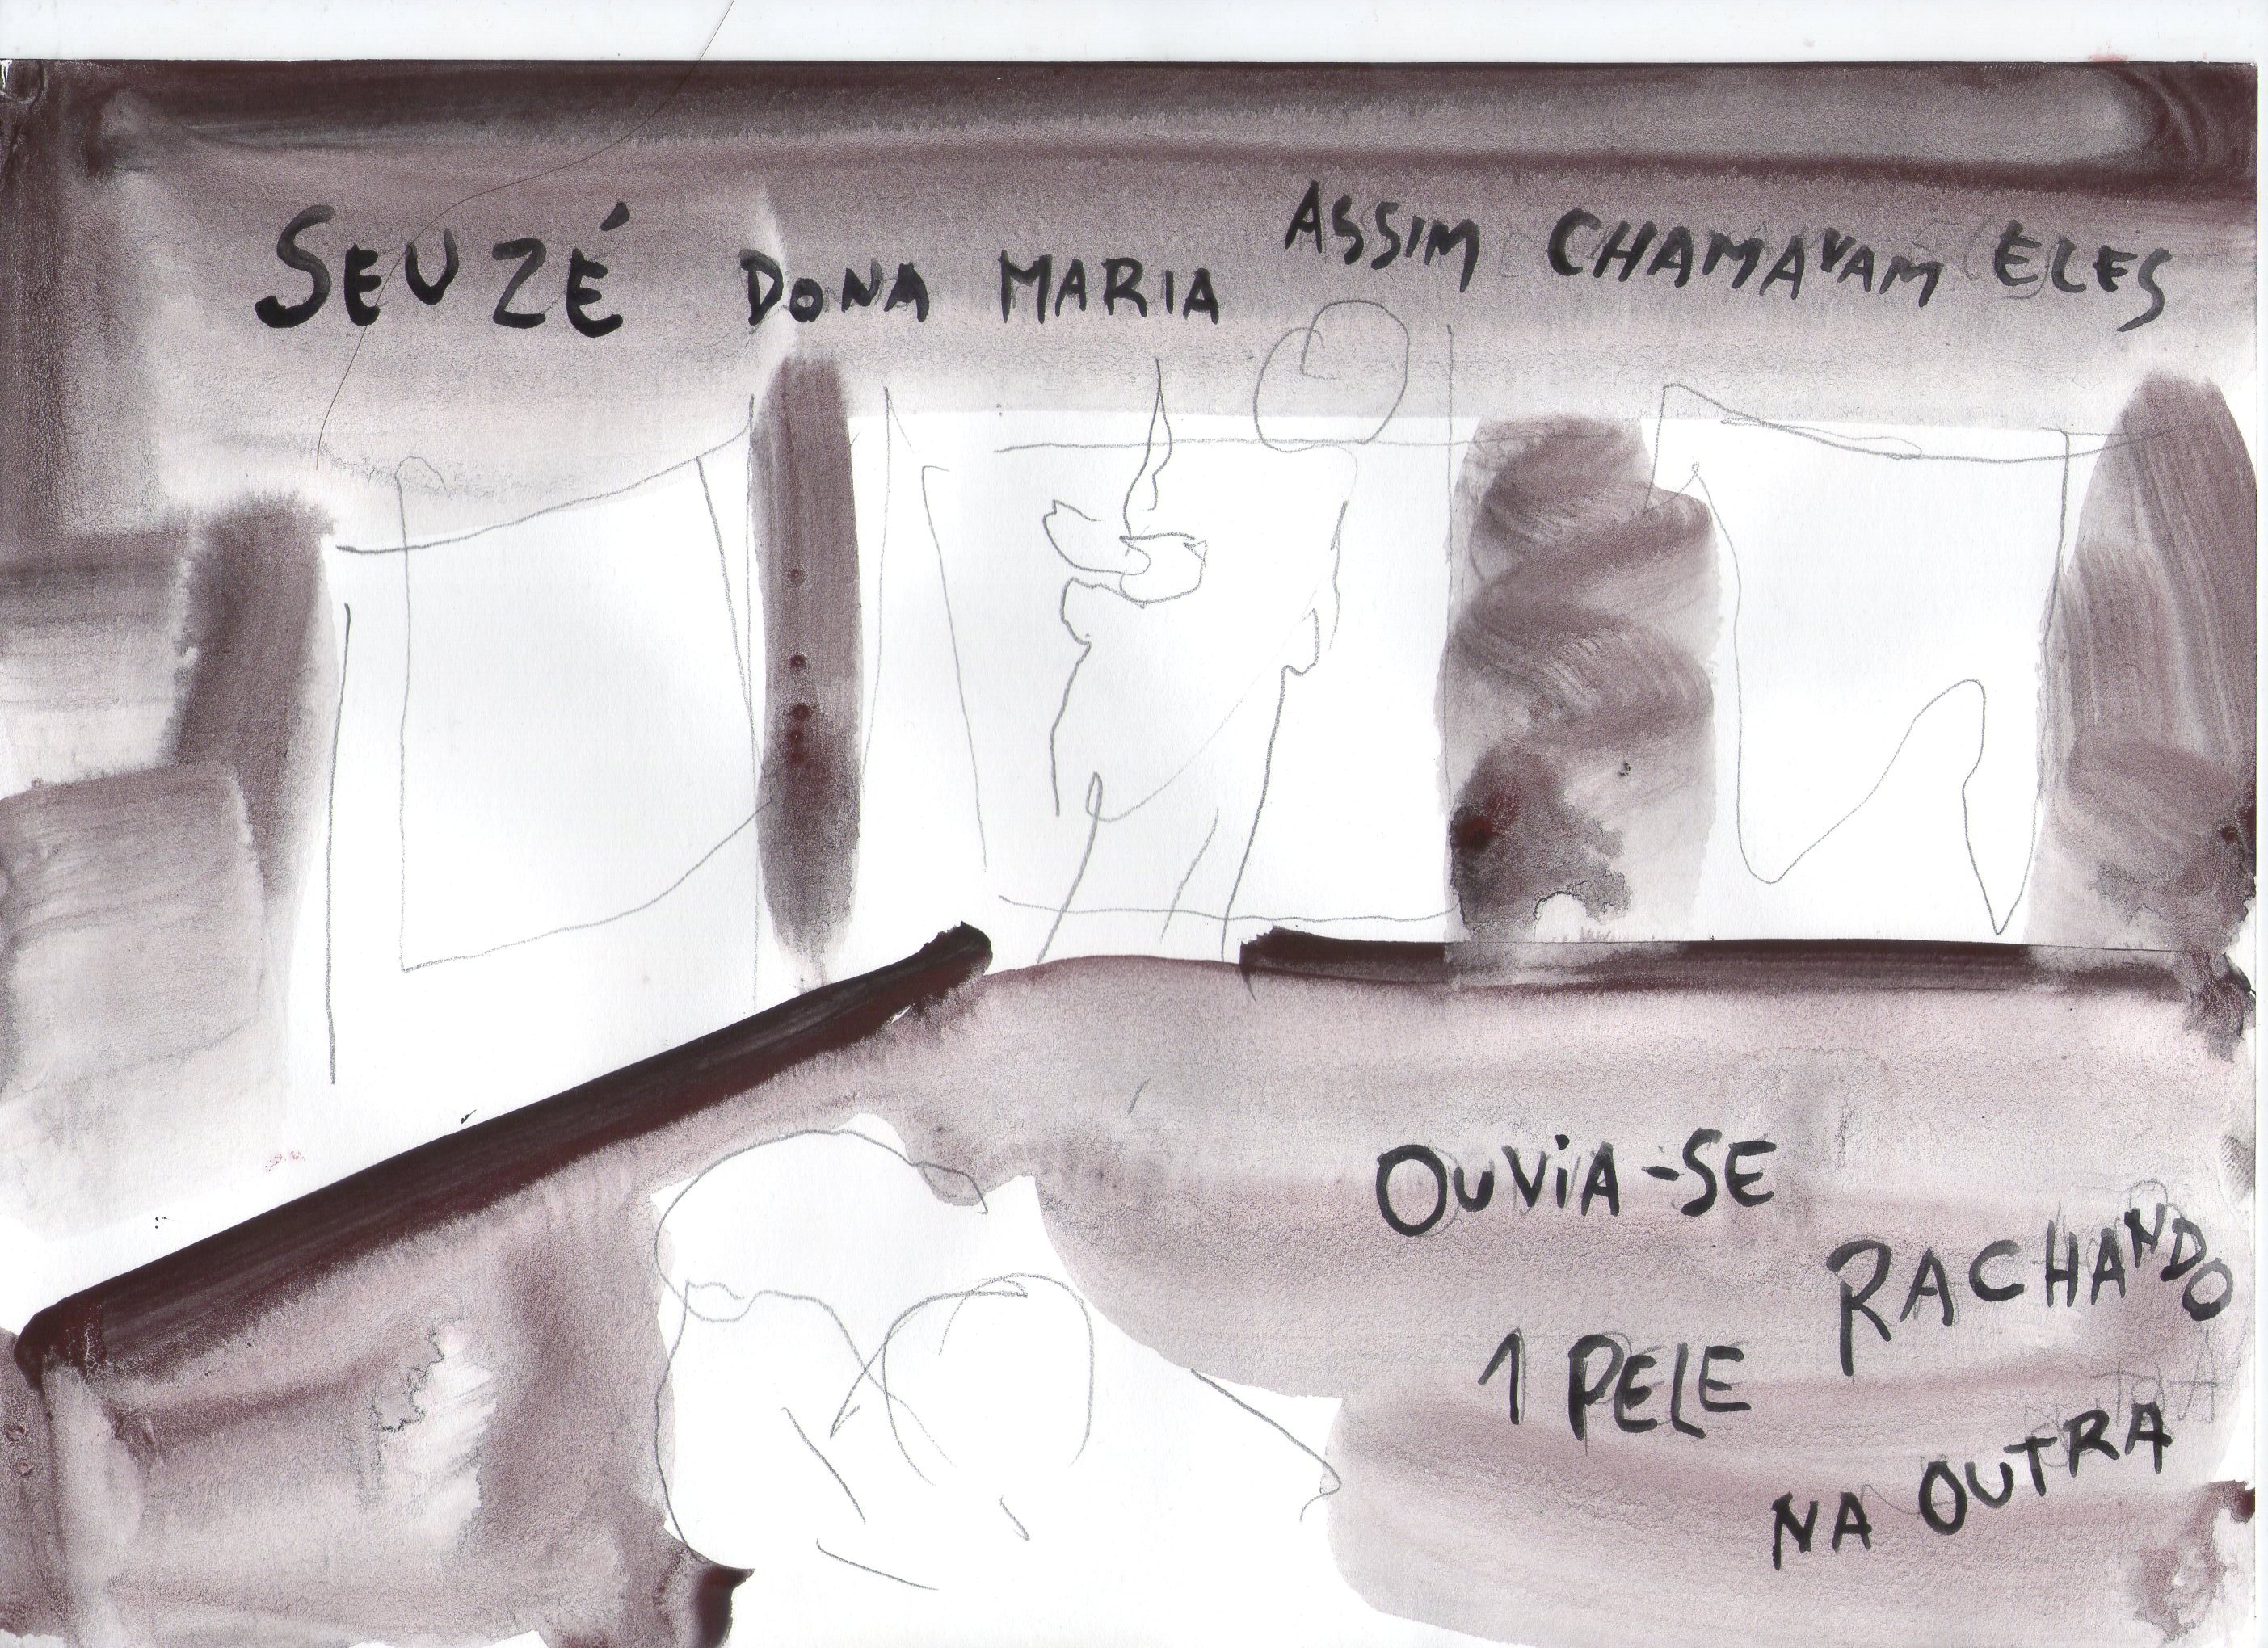 SEU ZÉ DONA MARIA ASSIM CHAMAVAM ELES
OUVIA-SE
RACHANDO
1 PELE
NA OUTRA